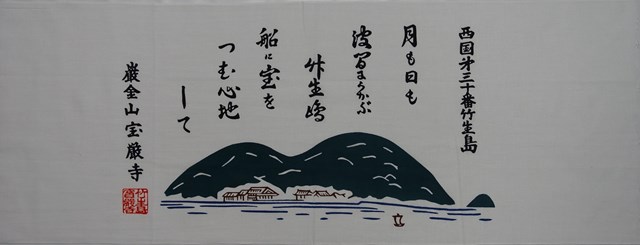 西国第三十番竹生島
月も日も
波間にうかぶ
竹生嶋
船に宝を
つむ心地
して
巌金山宝厳寺